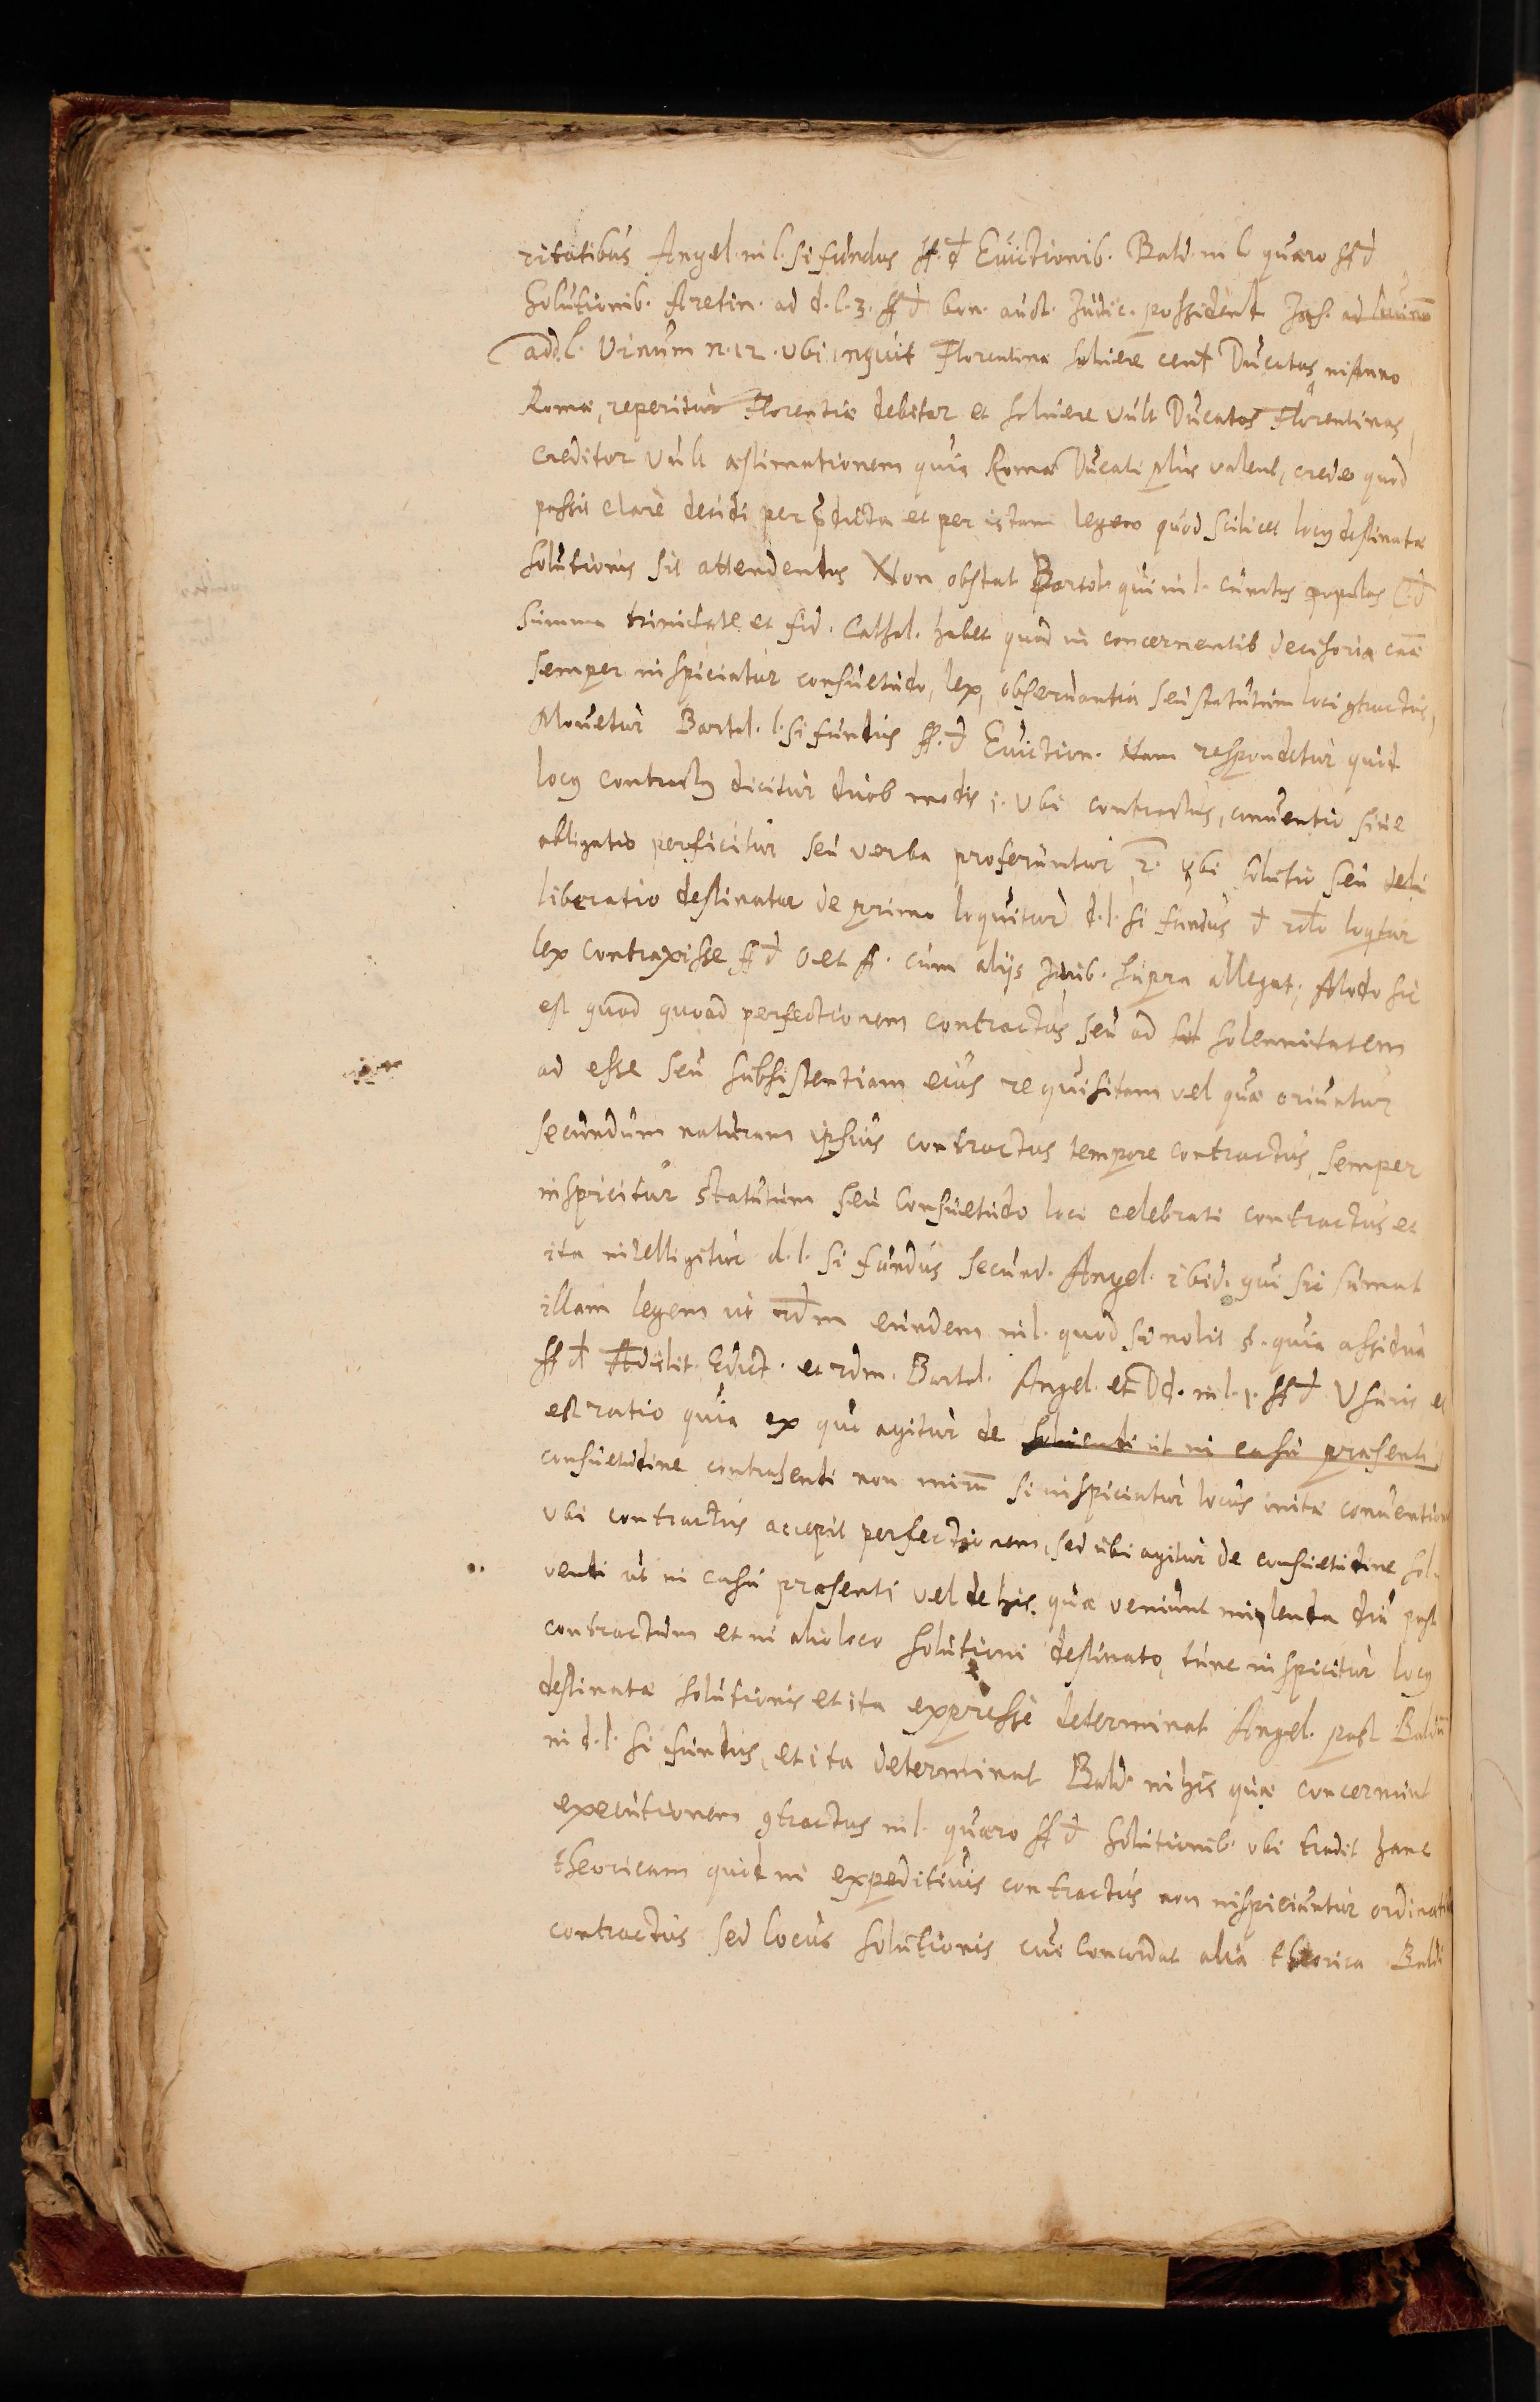 ritatibus Angel. in l. si fundus ff. d Euictionib. Bald. in l. quæro ff d
Solutionib. Aretin. ad d. l. 3. ff d bon. auct. Judic. possident Jas. ad
add l. Vinum n. 12. ubi inquit Florentina soluere cent Ducatos in Anno
Romæ, reperitur Florentiæ debitor et soluere vult Ducatos Florentinos,
creditor vult æstimationem quia Romæ Ducati plus valent, credo quod
possit clarè decidi per pdicta et per istam legem quod scilicet locus destinatæ
solutionis sit attendendus Non obstat Bartol. qui in l. cunctos populos C. d
summa trinitate et fid. Cathol. habet quod in concernentib decisoria caã
semper inspiciatur consuetudo, lex, obseruantia seu statutum loci gtractus,
Mouetur Bartol. l. si fundus ff. d Euiction. Nam respondetur quid
locus contractus dicitur duob modis 1. ubi contractus, conuentio siue
obligatio perficitur seu verba proferuntur, 2. ubi solutio seu deli
liberatio destinatur de primo loquitur d. l. si fundus d loqtur
lex contraxisse ff d O. et A. cum alijs Jurib. supra allegat; Modo sic
est quod quoad perfectionem contractus seu ad sol solennitatem
ad esse seu subsistentiam eius requisitam vel quæ oriuntur
secundum naturam ipsius contractus tempore contractus, semper
inspicitur statutum seu consuetudo loci celebrati contractus et
ita intelligitur d. l. si fundus secund. Angel. ibid. qui sic sumat
illam legem ut eundem in l. quod si nolit §. quia assidua
ff d Ædilit. Edict. et idm. Bartol. Angel. et Dd. in l. 1. ff d Usuris et
est ratio quia ex quo agitur de soluendi ut in casu præsenti
consuetudine contrahendi non mirũ si inspiciatur locus initæ conuentionis
ubi contractus accepit perfectionem, sed ubi agitur de consuetudine sol
uendi ut in casu præsenti vel de his quæ veniunt implenda diu post
contractum et in alio loco solutioni destinato, tunc inspicitur locus
destinatæ solutionis et ita expressè determinat Angel. post Baldũ
in d. l. si fundus, et ita determinat Bald. in his quæ concernunt
executionem gtractus in l. quæro ff d solutionib. ubi tradit hanc
theoricam quid in expeditiuis contractus non inspiciuntur ordinati
contractus sed locus solutionis cui concordat alia theorica Baldi